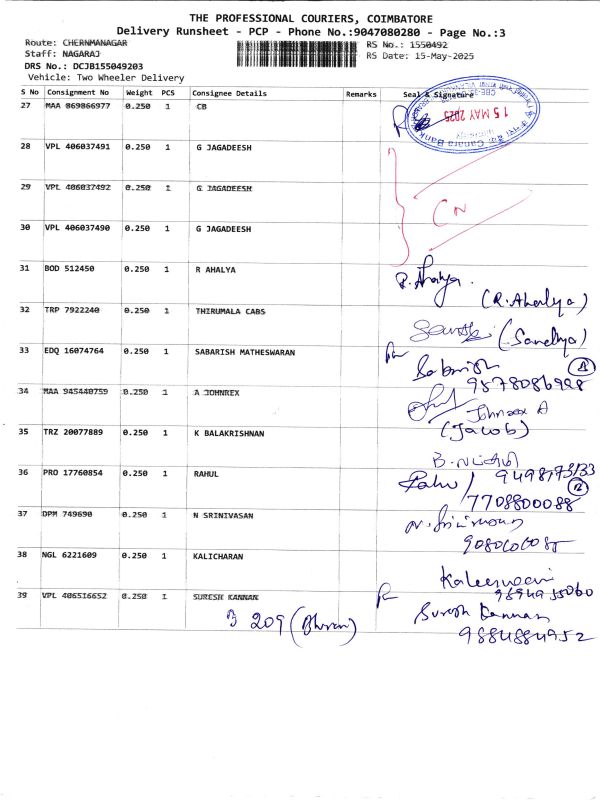 THE PROFESSIONAL COURIERS, COIMBATORE
Delivery Runsheet - PCP - Phone No.:9047080280 - Page No.:3
Route: CHERNMANAGAR
RS No.: 1550492
Staff: NAGARAJ
RS Date: 15-May-2025
DRS No.: DCJB155049203
Vehicle: Two Wheeler Delivery
S No Consignment No Weight PCS Consignee Details Remarks Seal & Signature
27 MAA 869866977 0.250 1 CB
15 MAY 2025
Canara Bank
28 VPL 406037491 0.250 1 G JAGADEESH
29 VPL 406037492 0.250 1 G JAGADEESH
CN
30 VPL 406037490 0.250 1 G JAGADEESH
31 BOD 512450 0.250 1 R AHALYA
R. Ahalya.
(R. Ahalya)
32 TRP 7922240 0.250 1 THIRUMALA CABS
(Sandhya)
33 EDQ 16074764 0.250 1 SABARISH MATHESWARAN
Sabarish
9578086988
34 MAA 945440759 0.250 1 A JOHNREX
Johnrex A
(Jacob)
35 TRZ 20077889 0.250 1 K BALAKRISHNAN
36 PRO 17760854 0.250 1 RAHUL
Rahul
7708800088
37 DPM 749690 0.250 1 N SRINIVASAN
N. Srinivasan
38 NGL 6221609 0.250 1 KALICHARAN
Kaleeswari
39 VPL 406516652 0.250 1 SURESH KANNAN
Suresh Kannan
9884884952
209